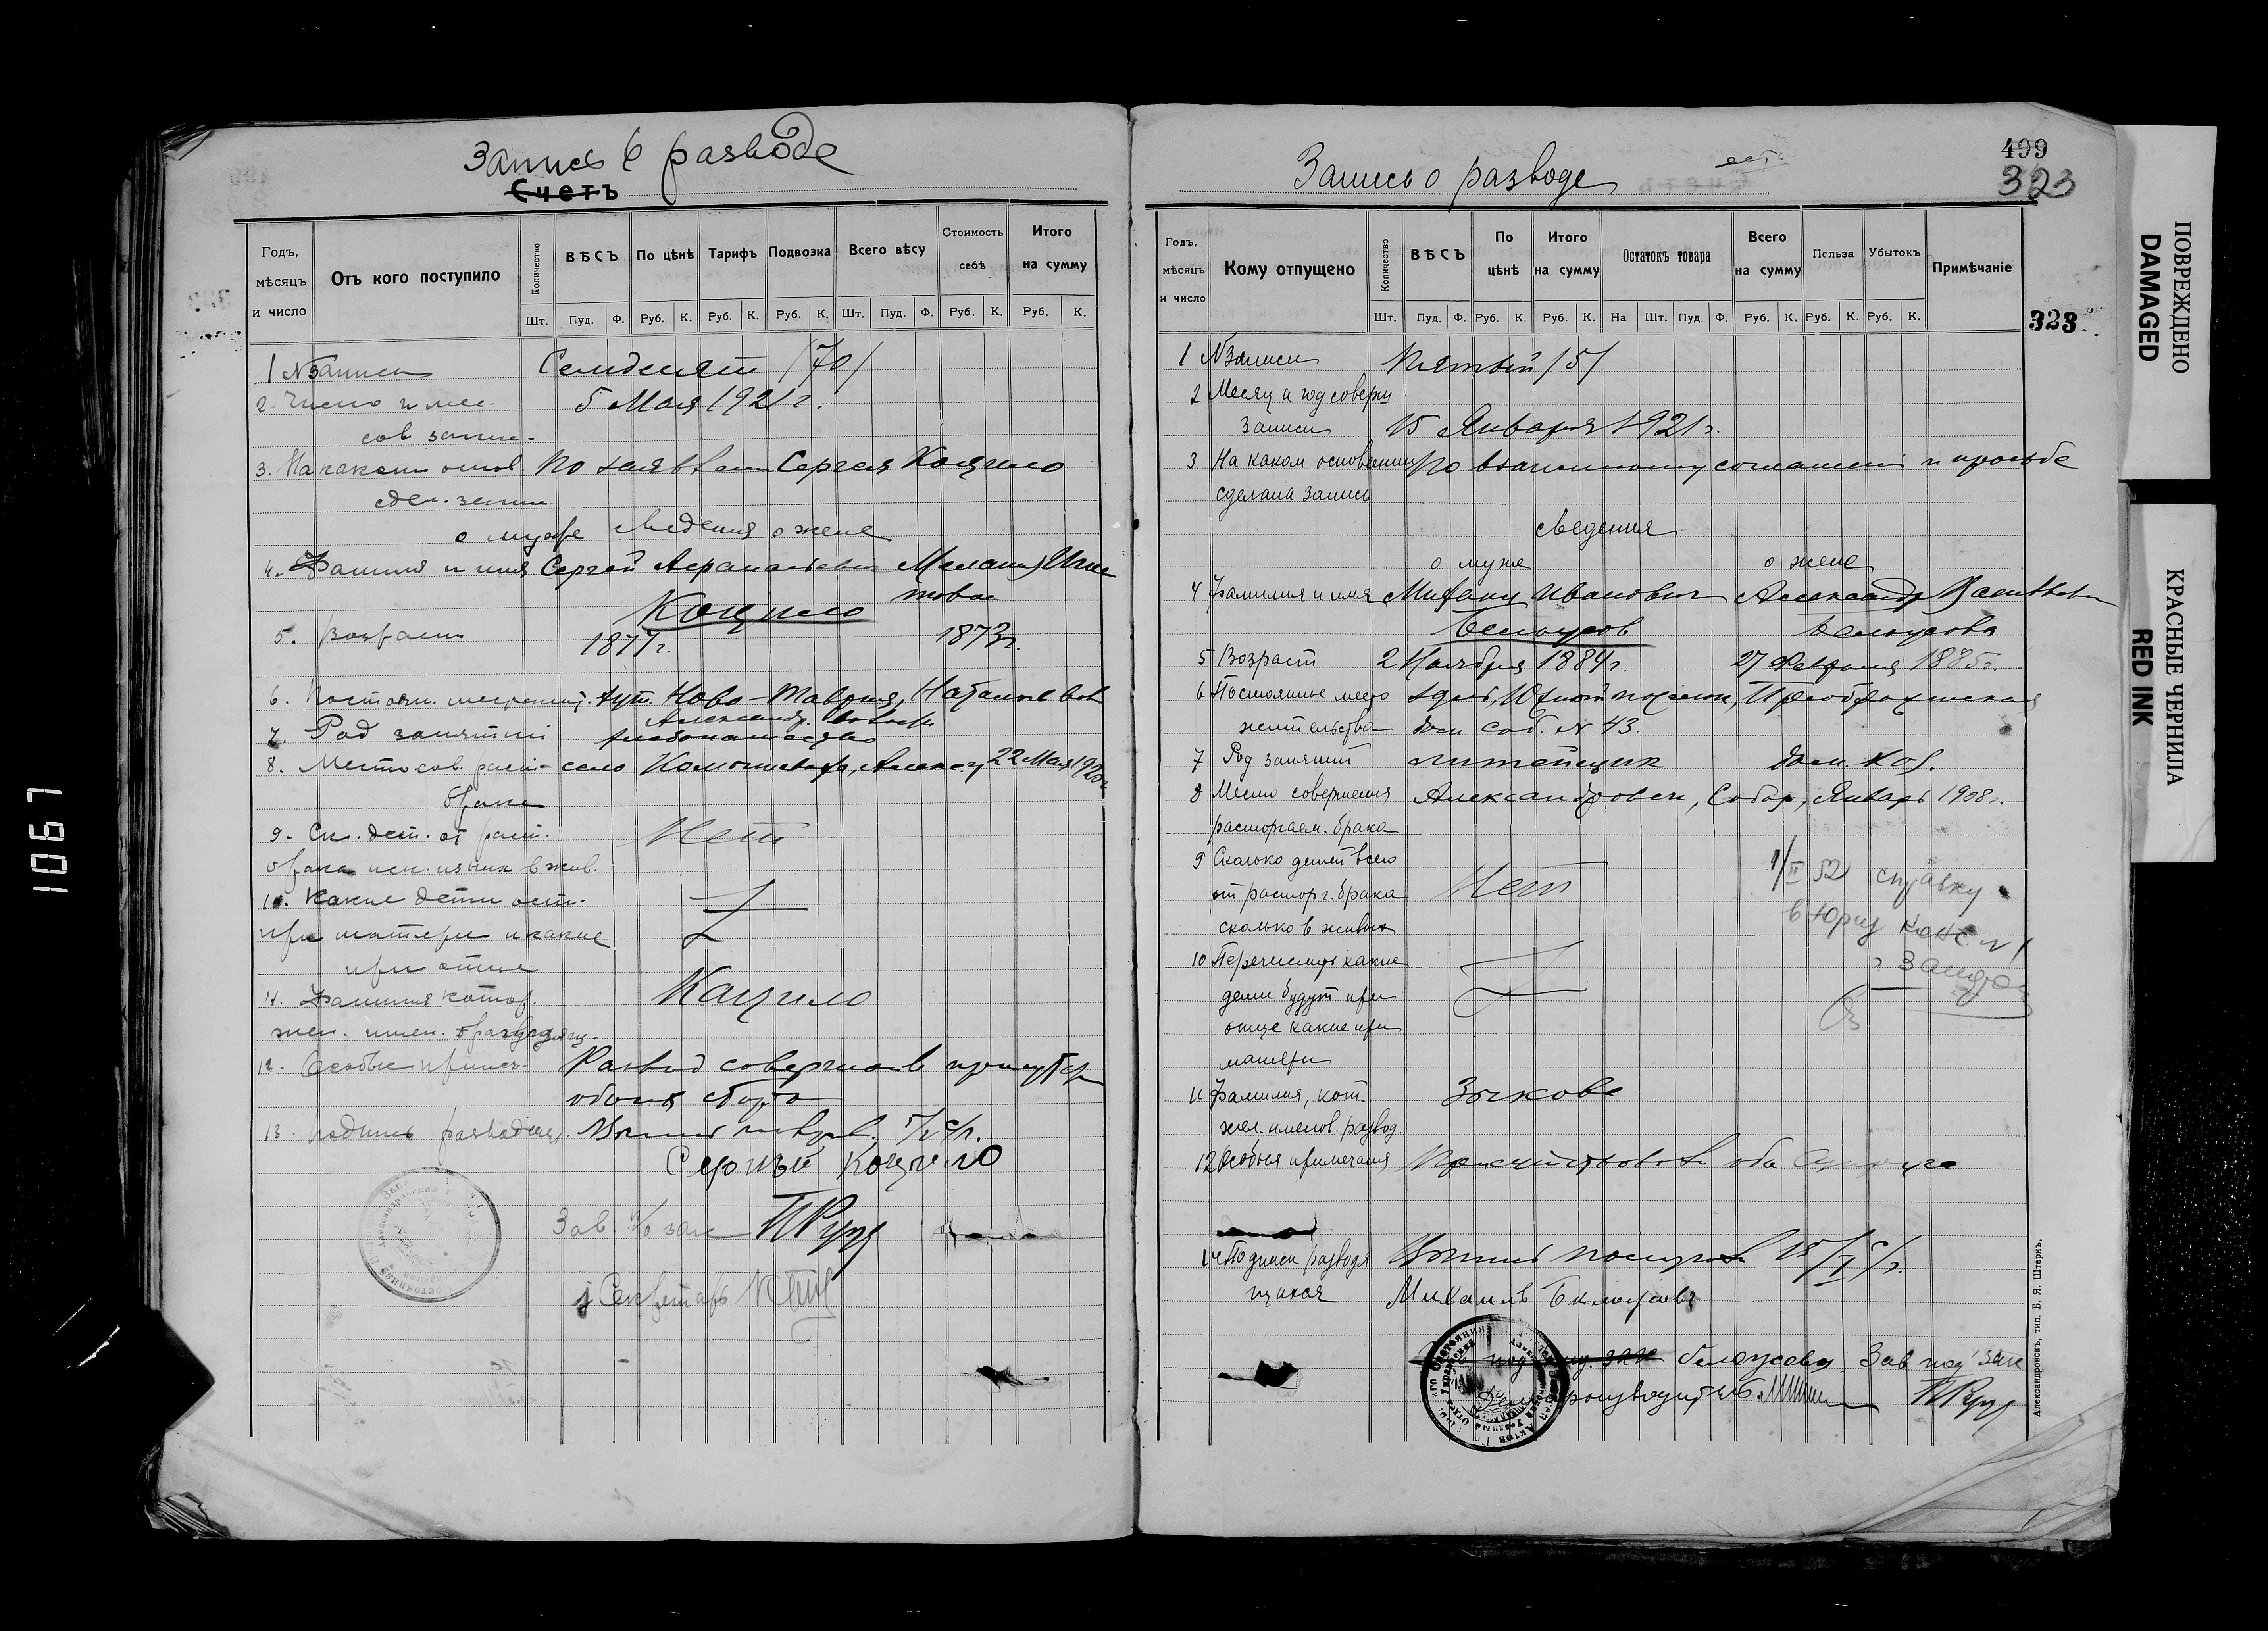 Запись о разводе
Счетъ
Годъ, мѣсяцъ и число
Отъ кого поступило
Количество
ВѢСЪ
По цѣнѣ
Тарифъ
Подвозка
Всего вѣсу
Стоимость себѣ
Итого на сумму
Шт. Пуд. Ф. Руб. К. Руб. К. Руб. К. Шт. Пуд. Ф. Руб. К. Руб. К.
1 N записи Семидесят /70/
2. Число и мес. 5 Мая 1921 г.
сов. запис.
3. На каком основ. По заявлен. Сергея Кацило
сдел. запис
о муже сведения о жене
4. Фамилия и имя Сергей Мелания
Кацило
5. Возраст 1877 г. 1873 г.
6. Ново-Таврия,
7. Род занятий хлебопашество
8. Место сов. раст. село Комышеваха, 22 Мая 1920 г.
брака
9. Ск. дет. от раст. Нет
брака иск. из них в жив.
10. Какие дети ост.
при матери и какие
при отце
11. Фамилия котор. Кацило
жел. имен. разводящ.
12. Особые примеч. Развод совершен в присутств
обоих сторон
13. подпись разводящ.
Сергей Кацило
Зав. п/о зап
Секретарь
Запись о разводе
499
323
323
Годъ, мѣсяцъ и число
Кому отпущено
Количество
ВѢСЪ
По цѣнѣ
Итого на сумму
Остатокъ товара
Всего на сумму
Польза
Убытокъ
Примѣчаніе
Шт. Пуд. Ф. Руб. К. Руб. К. На Шт. Пуд. Ф. Руб. К. Руб. К. Руб. К.
1 N записи Пятый /5/
2 Месяц и год соверш
записи 15 Января 1921 г.
3 На каком основании По взаимному соглашению и просьбе
сделана запись
сведения
о муже о жене
4 Фамилия и имя Иванович Александра Васильевна
Белоусов Белоусова
5 Возраст 2 Ноября 1884 г. 27 Февраля 1885 г.
6 Постоянное место здесь, Южный поселок, Преображенская
жительства дом соб. N 43.
7 Род занятий литейщик Дом. хоз.
8 Место совершения Александровск, Собор, Январь 1908 г.
расторгаем. брака
9 Сколько детей всего Нет
от расторг. брака
сколько в живых
1/II 52 справку
в Юрид конс. N 1
10 Перечислить какие
дети будут при
отце какие при
матери
11 Фамилия, кот. Зыкова
жел. именов. развод.
12 Особыя примечания Присутствовали оба супруга
14 Подписи разводя
щихся Михаилъ Белоусовъ
Зав под зап
Александровскъ, тип. Б. Я. Штернъ.
ПОВРЕЖДЕНО
DAMAGED
КРАСНЫЕ ЧЕРНИЛА
RED INK
1067